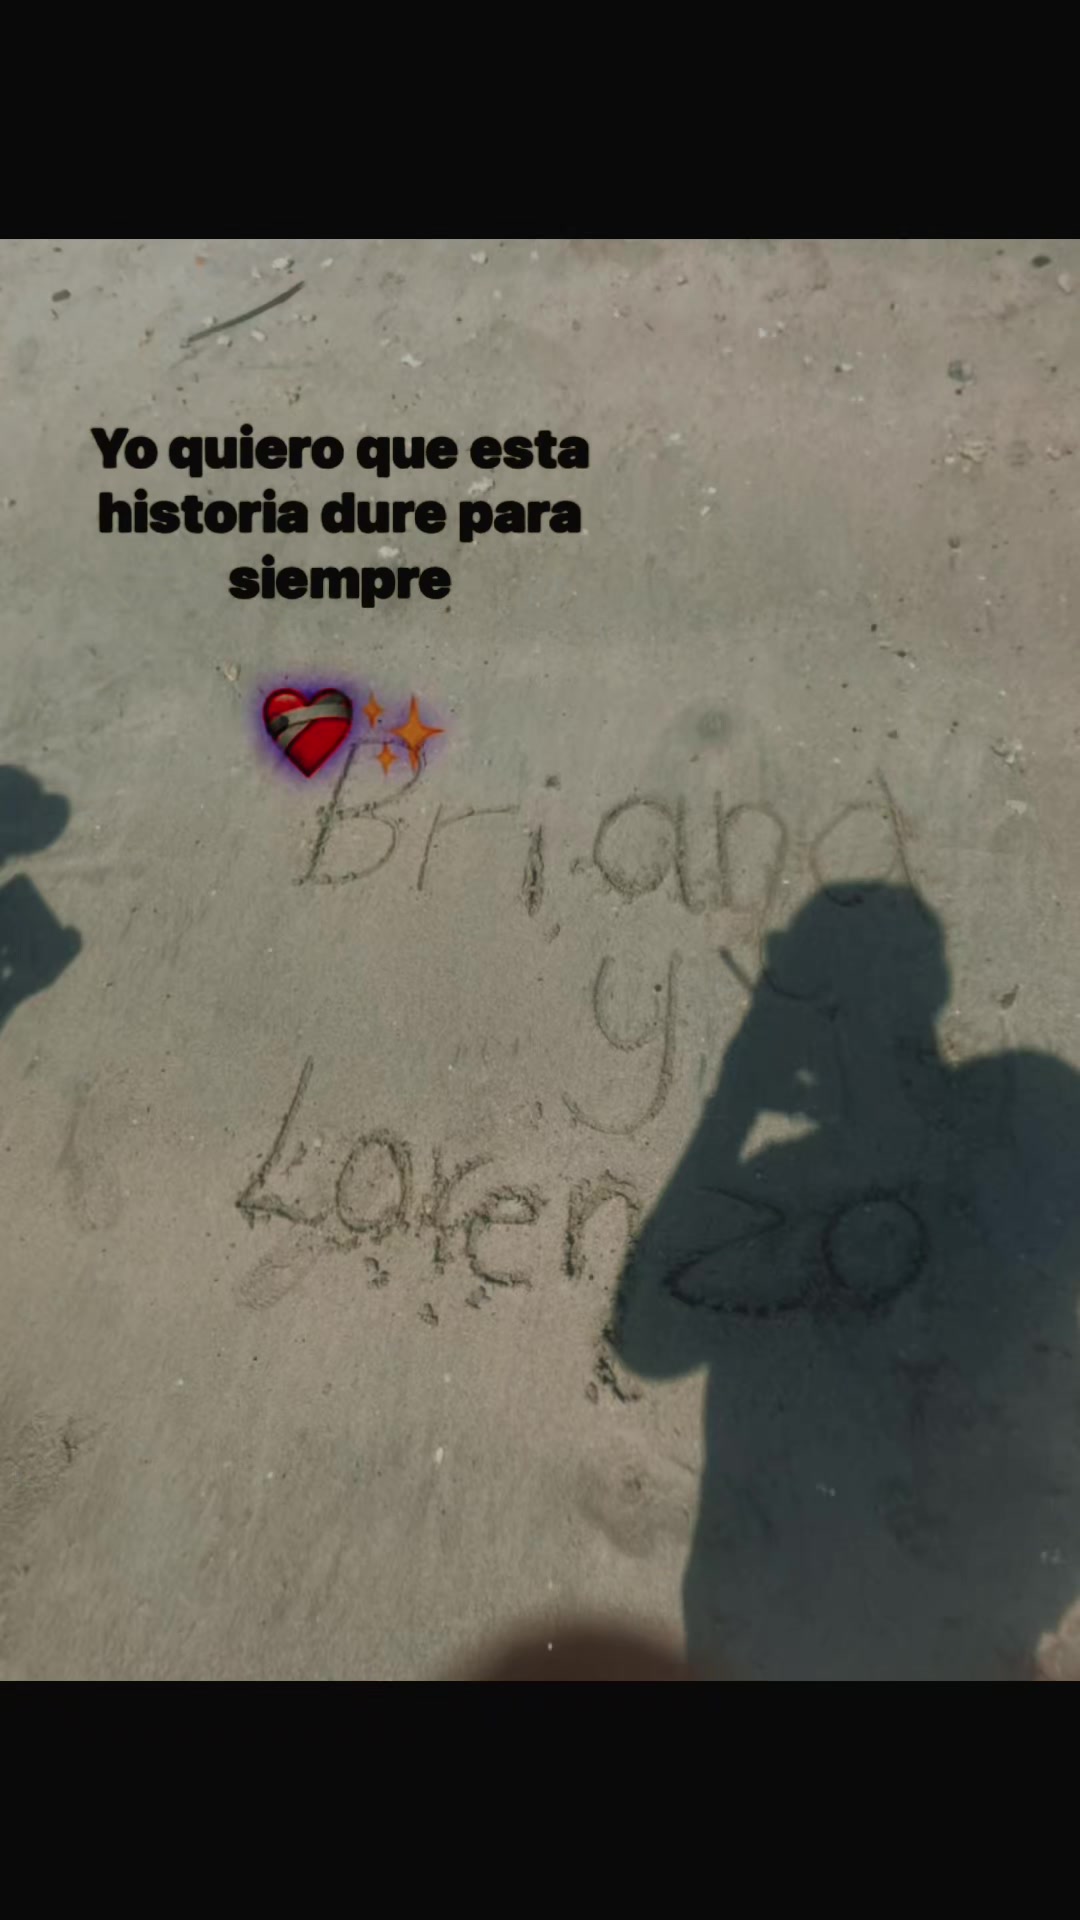 Yo quiero que esta
historia dure para
siempre
Briana
y
Lorenzo